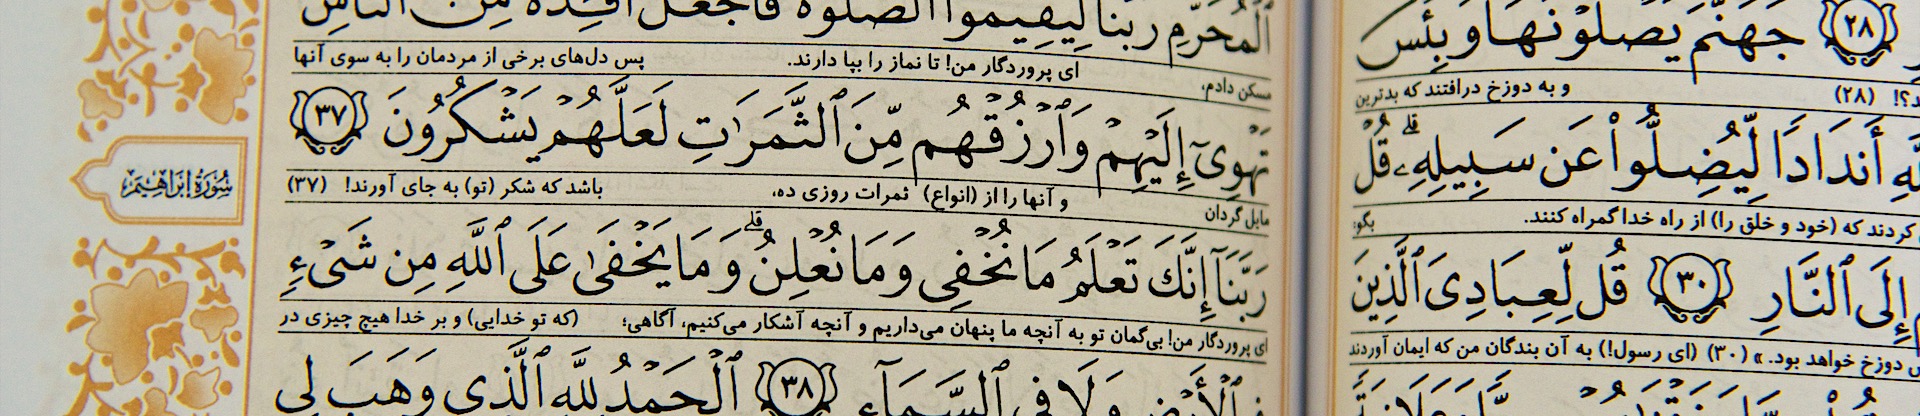 ٢٨ جَهَنَّمَ يَصْلَوْنَهَا وَبِئْسَ
(٢٨) و به دوزخ درافتند که بدترین
أَندَادًا لِّيُضِلُّوا۟ عَن سَبِيلِهِۦ ۗ قُلْ
کردند که (خود و خلق را) از راه خدا گمراه کنند. بگو:
إِلَى ٱلنَّارِ ٣٠ قُل لِّعِبَادِىَ ٱلَّذِينَ
دوزخ خواهد بود. » (٣٠) (ای رسول!) به آن بندگان من که ایمان آوردند
ٱلْمُحَرَّمِ رَبَّنَا لِيُقِيمُوا۟ ٱلصَّلَوٰةَ فَٱجْعَلْ أَفْـِٔدَةً مِّنَ ٱلنَّاسِ
مسکن دادم، ای پروردگار من! تا نماز را بپا دارند. پس دل‌های برخی از مردمان را به سوی آنها
تَهْوِىٓ إِلَيْهِمْ وَٱرْزُقْهُم مِّنَ ٱلثَّمَرَٰتِ لَعَلَّهُمْ يَشْكُرُونَ ٣٧
مایل گردان و آنها را از (انواع) ثمرات روزی ده، باشد که شکر (تو) به جای آورند! (٣٧)
رَبَّنَآ إِنَّكَ تَعْلَمُ مَا نُخْفِى وَمَا نُعْلِنُ ۗ وَمَا يَخْفَىٰ عَلَى ٱللَّهِ مِن شَىْءٍ
ای پروردگار من! بی‌گمان تو به آنچه ما پنهان می‌داریم و آنچه آشکار می‌کنیم، آگاهی؛ (که تو خدایی) و بر خدا هیچ چیزی در
ٱلْأَرْضِ وَلَا فِى ٱلسَّمَآءِ ٣٨ ٱلْحَمْدُ لِلَّهِ ٱلَّذِى وَهَبَ لِى
سُورَةُ إِبْرَاهِيمَ